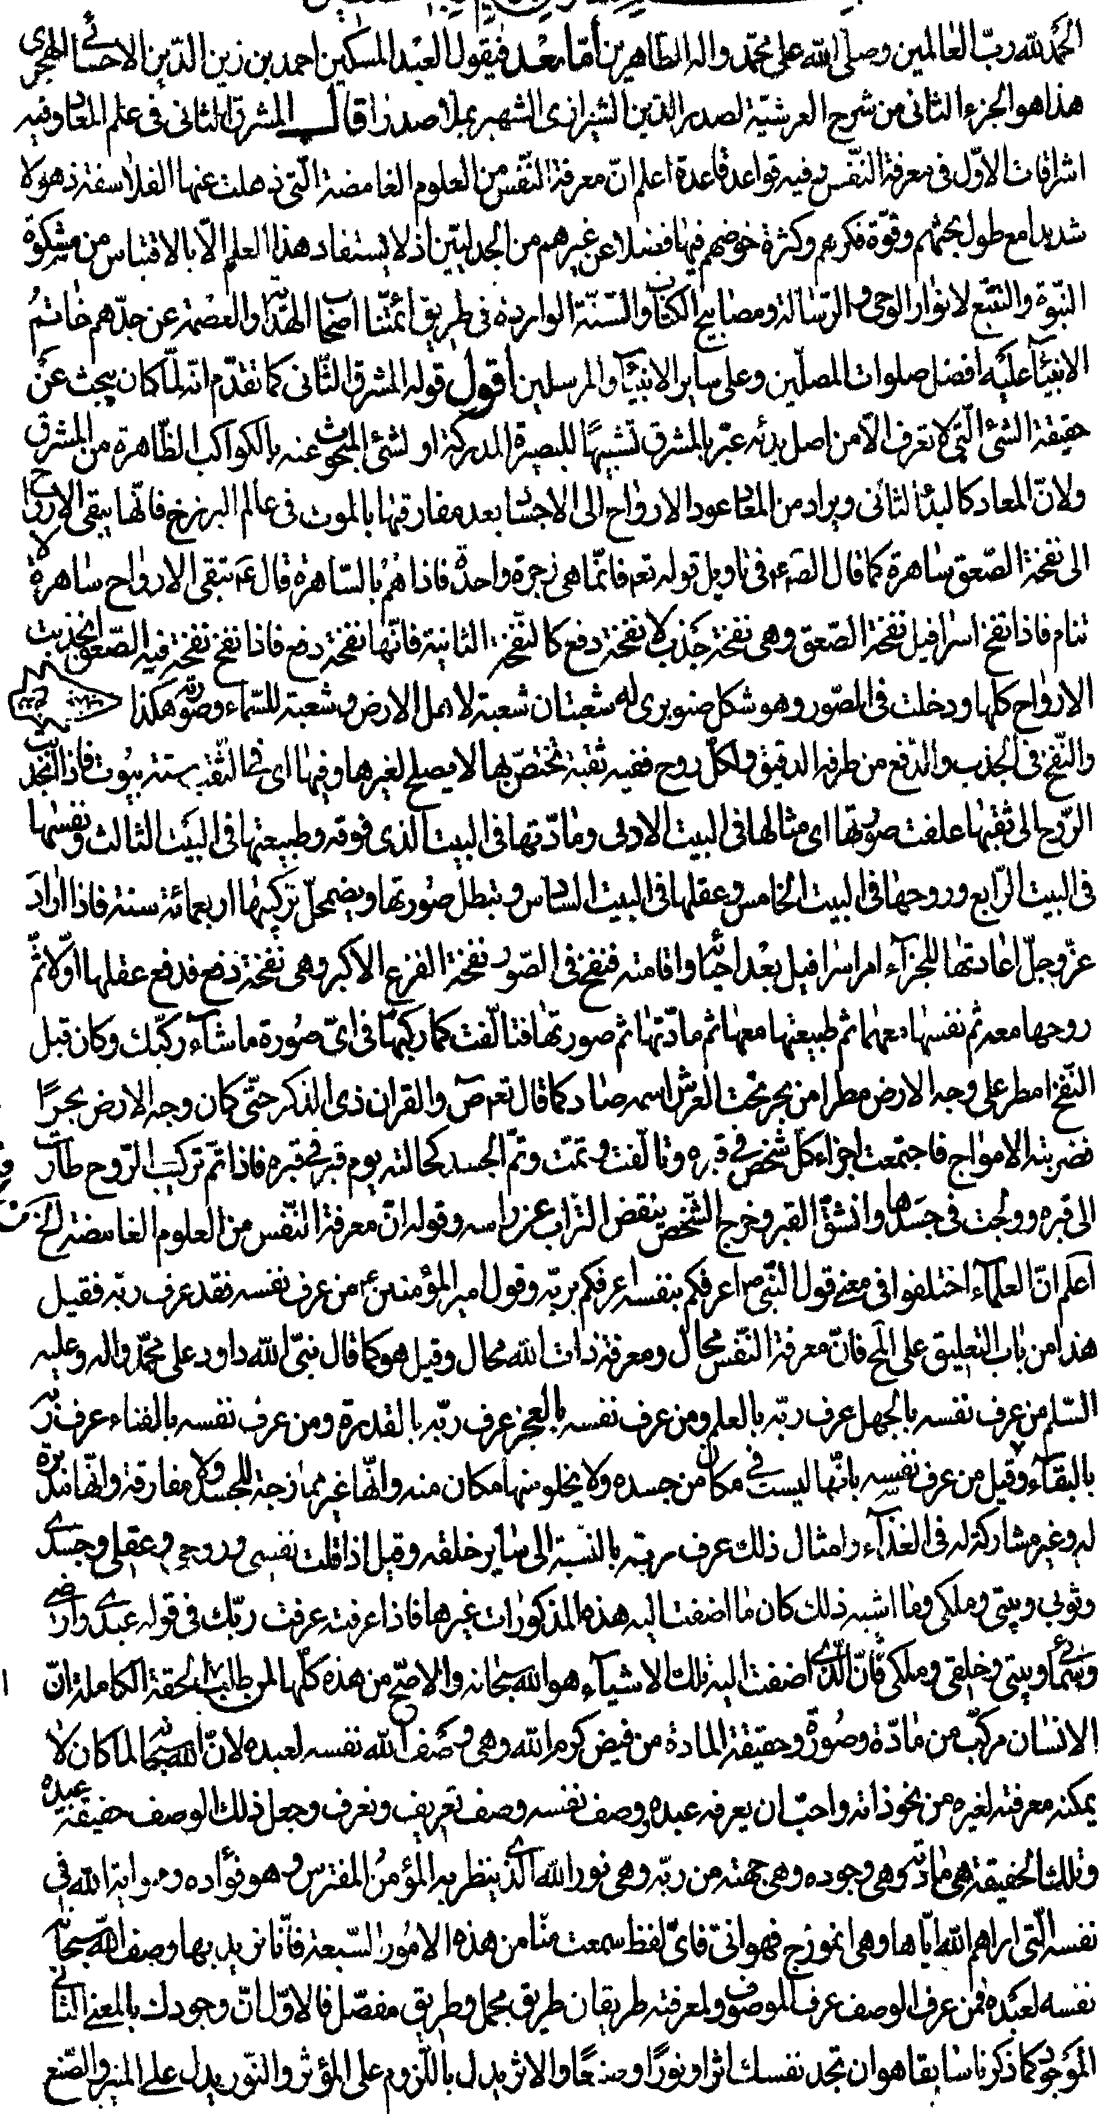 الحمد لله ربّ العالمين وصلّى الله على محمّد واله الطّاهرين أمّا بعد فيقول العبد المسكين احمد بن زين الدّين الاحسائي الهجري
هذا هو الجزء الثانى من شرح العرشيّة لصدر الدّين الشيرازى الشهير بملا صدرا قال المشرق الثانى فى علم المعاد وفيه
اشراقات الاوّل فى معرفة النّفس وفيه قواعد قاعدة اعلم انّ معرفة النّفس من العلوم الغامضة الّتى ذهلت عنها الفلاسفة ذهولا
شديدا مع طول بحثهم وقوّة فكرهم وكثرة خوضهم فيها فضلا عن غيرهم من الجدليّين اذ لا يستفاد هذا العلم الّا بالاقتباس من مشكوة
النبّوة والتتبّع لانوار الوحى والرّسالة ومصابيح الكتاب والسّنّة الواردة فى طريق أئمّتنا اصحاب الهداية والعصمة عن جدّهم خاتم
الانبيآء عليه افضل صلوات المصلّين وعلى ساير الانبيآء والمرسلين أقول قوله المشرق الثّانى كما تقدّم انّه لمّا كان يبحث عن
حقيقة الشئ الّتى لا تعرف الّا من اصل بدئه عبّر بالمشرق تشبيهًا للبصيرة المدركة او لشئ المبحوث عنه بالكواكب الظّاهرة من المشرق
ولانّ المعاد كالبدء الثانى ويراد من المعاد عود الارواح الى الاجساد بعد مفارقتها بالموت فى عالم البرزخ فانّها يبقى الارواح
الى نفخة الصّعق ساهرة كما قال الصّادق ع فى تاويل قوله تع فانّما هى زجرة واحدة فاذا هم بالسّاهرة قال ع تبقى الارواح ساهرة لا
تنام فاذا نفخ اسرافيل نفخة الصّعق وهى نفخة جذب لا نفخة دفع كالنّفخة الثانية فانّها نفخة دفع فاذا نفخ نفخة فيه الصّعق انجذبت
الارواح كلها ودخلت فى الصّور وهو شكل صنوبرى له شعبتان شعبة لاهل الارض وشعبة للسّماء وصورته هكذا
والنّفخ فى الجذب والدّفع من طرفه الدقيق ولكلّ روح ففيه ثقبة تختصّ بها لا يصلح لغيرها وفيها اى فى الثقبة ستة بيوت فاذا انجذبت
الرّوح الى ثقبتها علفت صورتها اى مثالها فى البيت الاوّل ومادّتها فى البيت الّذى فوقه وطبيعتها فى البيت الثالث ونفسها
فى البيت الرّابع وروحها فى البيت الخامس وعقلها فى البيت السّادس وتبطل صورتها ويضمحلّ تركيبها اربعمائة سنة فاذا اراد
عزّ وجلّ اعادتها للجزآء امر اسرافيل بعد احيائه واقامته فنفخ فى الصّور نفخة الفزع الاكبر وهى نفخة دفع فدفع عقلها اوّلا ثمّ
روحها معه ثم نفسها معهما ثم طبيعتها معها ثم مادّتها ثم صورتها فتالّفت كما ركّبها فى اىّ صورة ما شآء ركّبك وكان قبل
النّفخ امطر على وجه الارض مطرا من بحر تحت العرش اسمه صاد كما قال تع ص والقران ذى الذّكر حتّى كان وجه الارض بحرًا
فضربته الامواج فاجتمعت اجزاء كلّ شخص فى قبره وتالّفت وتمّت وتمّ الجسد كحالته يوم قبر فى قبره فاذا تمّ تركيب الرّوح طارت
الى قبره وولجت فى جسدها وانشقّ القبر وخرج الشّخص ينفض التراب عن راسه وقوله انّ معرفة النّفس من العلوم الغامضة الخ
اعلم انّ العلمآء اختلفوا فى معنى قول النّبى ص اعرفكم بنفسه اعرفكم بربّه وقول امير المؤمنين ع من عرف نفسه فقد عرف ربّه فقيل
هذا من باب التّعليق على المح فانّ معرفة النّفس محال ومعرفة ذات الله محال وقيل هو كما قال نبىّ الله داود على محمّد واله وعليه
السّلم من عرف نفسه بالجهل عرف ربّه بالعلم ومن عرف نفسه بالعجز عرف ربّه بالقدرة ومن عرف نفسه بالفناء عرف ربّه
بالبقآء وقيل من عرف نفسه بانّها ليست فى مكان من جسده ولا يخلو منها مكان منه وانّها غير ممازجة للجسد ولا مفارقة وانّها مدبّرة
له وغير مشاركة له فى الغذآء وامثال ذلك عرف ربّه بالنّسبة الى ساير خلقه وقيل اذا قلت نفسى وروحى وعقلى وجسدى
وثوبى وبيتى وملكى وما اشبه ذلك كان ما اضفت اليه هذه المذكورات غيرها فاذا عرفته عرفت ربّك فى قوله عبدى وارضى
وسمائى وبيتى وخلقى وملكى فانّ الّذى اضفت اليه تلك الاشيآء هو الله سبحانه والاصحّ من هذه كلّها لمن طلب الحقّة الكاملة انّ
الانسان مركّب من مادّة وصورة وحقيقة المادة من فيض كرم الله وهى وصف الله نفسه لعبده لانّ الله سبحانه لما كان لا
يمكنه معرفته لغيره من نحو ذاته واحبّ ان يعرفه عبده وصف نفسه وصف تعريف وتعرف وجعل ذلك الوصف حقيقة عبده
وتلك الحقيقة هى مادّته وهى وجوده وهى جهته من ربّه وهى نور الله الّذى ينظر به المؤمن المفترس وهو فؤاده وهو اية الله فى
نفسه الّتى اراهم الله ايّاها وهى انموزج فهوانى فاىّ لفظ سمعت منّا من هذه الامور السّبعة فانّا نريد بها وصف الله سبحانه
نفسه لعبده فمن عرف الوصف عرف الموصوف ولمعرفته طريقان طريق مجمل وطريق مفصّل فالاوّل انّ وجودك بالمعنى الثّانى
الموجود كما ذكرنا سابقا هو ان تجد نفسك اثرا ونورًا وصنعًا والاثر يدل باللّزوم على المؤثر والنّور يدل على المنير والصّنع